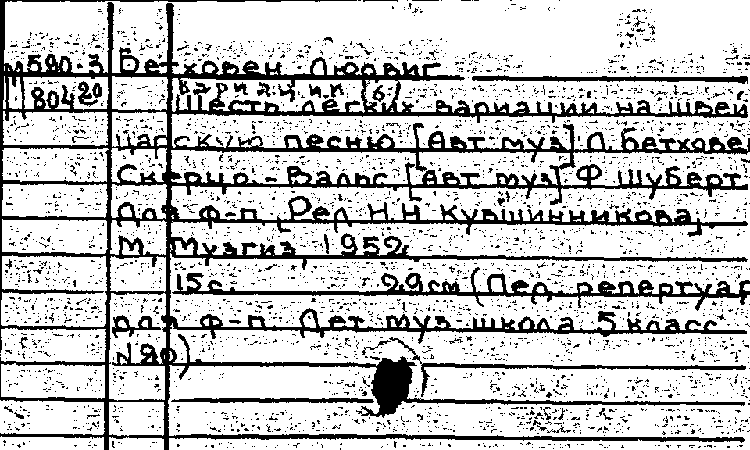 м590-3 Бетховен Людвиг
М80420 вариации (6)
Шесть легких вариаций на швей
царскую песню [Авт муз] Л. Бетховен
Скерцо. - Вальс. [Авт муз] Ф Шуберт
Для ф-п. [Ред Н.Н Кувшинникова].
М, Музгиз, 1952.
15 с. 29 см (Пед. репертуар
для ф-п. Дет муз-школа 5 класс
№20).